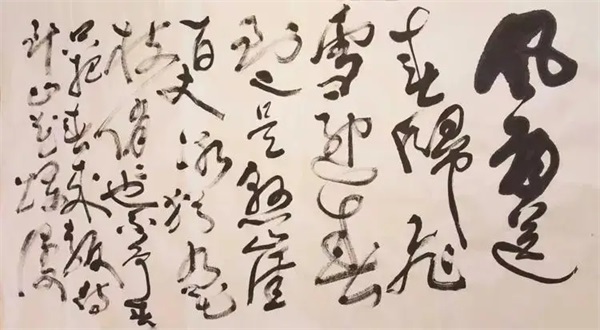 风雨送
春歸飛
雪迎春
到已是懸崖
百丈冰猶有花
枝俏々也不争春
只把春来報待
到山花爛漫